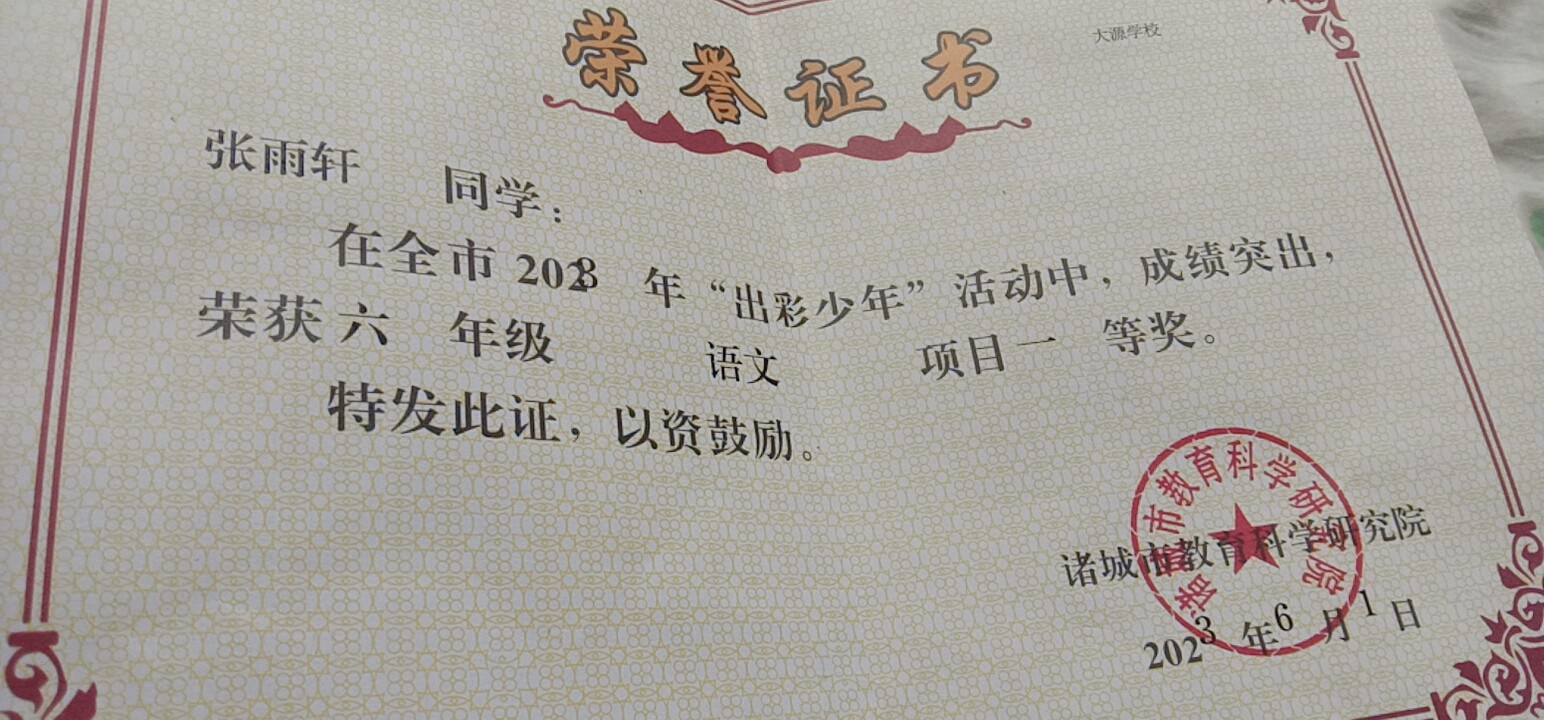 荣誉证书
大源学校
张雨轩 同学：
在全市 2023 年“出彩少年”活动中，成绩突出，
荣获 六 年级 语文 项目 一 等奖。
特发此证，以资鼓励。
诸城市教育科学研究院
诸城市教育科学研究院
2023 年 6 月 1 日